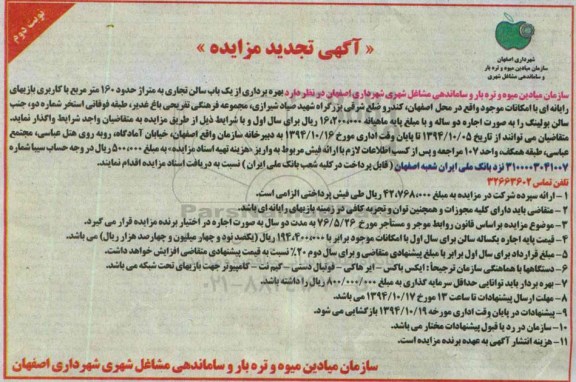 نوبت دوم
« آگهی تجدید مزایده »
شهرداری اصفهان
سازمان میادین میوه و تره بار
و ساماندهی مشاغل شهری
سازمان میادین میوه و تره بار و ساماندهی مشاغل شهری شهرداری اصفهان در نظر دارد بهره برداری از یک باب سالن تجاری به متراژ حدود ۱۶۰ متر مربع با کاربری بازیهای
رایانه ای با امکانات موجود واقع در محل اصفهان، کندرو ضلع شرقی بزرگراه شهید صیاد شیرازی، مجموعه فرهنگی تفریحی باغ غدیر، طبقه فوقانی استخر شماره دو، جنب
سالن بولینگ را به صورت اجاره دو ساله و با مبلغ پایه ماهیانه ریال برای سال اول و با شرایط ذیل از طریق مزایده به متقاضیان واجد شرایط واگذار نماید.
متقاضیان می توانند از تاریخ ۱۳۹۴/۱۰/۰۵ تا پایان وقت اداری مورخ ۱۳۹۴/۱۰/۱۶ به دبیرخانه سازمان واقع اصفهان، خیابان آمادگاه، روبه روی هتل عباسی، مجتمع
عباسی، طبقه همکف، واحد ۱۰۷ مراجعه و پس از کسب اطلاعات لازم با ارائه فیش مربوط به واریز «هزینه تهیه اسناد مزایده» به مبلغ ۵۰۰,۰۰۰ ریال در وجه حساب سیبا شماره
۳۱۰۰۰۰۳۰۳۱۰۰۷ نزد بانک ملی ایران شعبه اصفهان ( قابل پرداخت در کلیه شعب بانک ملی ایران ) نسبت به دریافت اسناد مزایده اقدام نمایند.
تلفن تماس ۳۲۶۶۳۶۰۲
۱ - ارائه سپرده شرکت در مزایده به مبلغ ۴۲,۷۶۸,۰۰۰ ریال طی فیش پرداختی الزامی است.
۲ - متقاضی باید دارای کلیه مجوزات و همچنین توان و تجربه کافی در زمینه بازیهای رایانه ای باشد.
۳ - موضوع مزایده براساس قانون روابط موجر و مستاجر مورخ ۷۶/۵/۲۶ به مدت دو سال به صورت اجاره در اختیار برنده مزایده قرار می گیرد.
۴ - قیمت پایه اجاره یکساله سالن برای سال اول با امکانات موجود برابر با ۱۹۴,۴۰۰,۰۰۰ ریال (یکصد نود و چهار میلیون و چهارصد هزار ریال) می باشد.
۵ - مبلغ قرارداد برای سال اول برابر با مبلغ پیشنهادی متقاضی و برای سال دوم ۲۰٪ نسبت به قیمت پیشنهادی متقاضی افزایش خواهد داشت.
۶ - دستگاهها با هماهنگی سازمان ترجیحا : ایکس باکس - ایر هاکی - فوتبال دستی - گیم نت - کامپیوتر جهت بازیهای تحت شبکه می باشد.
۷ - بهره بردار باید توانایی حداقل سرمایه گذاری به مبلغ ۸۰۰/۰۰۰/۰۰۰ ریال را داشته باشد.
۸ - مهلت ارسال پیشنهادات تا ساعت ۱۳ مورخ ۱۳۹۴/۱۰/۱۷ می باشد.
۹ - پیشنهادات در پایان وقت اداری مورخه ۱۳۹۴/۱۰/۱۹ بازگشایی می شود.
۱۰ - سازمان در رد یا قبول پیشنهادات مختار می باشد.
۱۱ - هزینه انتشار آگهی به عهده برنده مزایده است.
سازمان میادین میوه و تره بار و ساماندهی مشاغل شهری شهرداری اصفهان